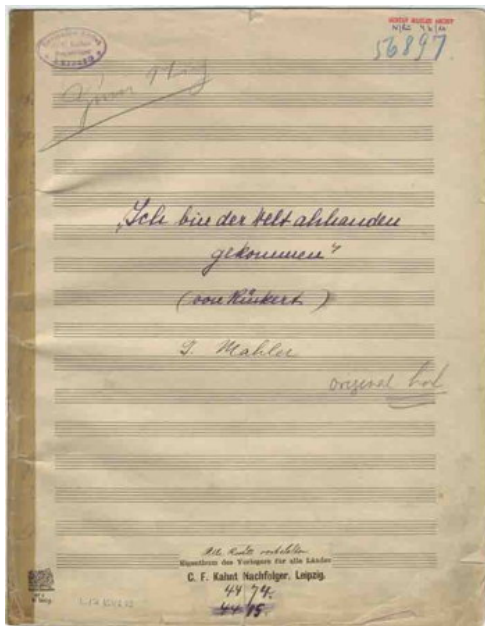 56897
Zum Stich
„Ich bin der Welt abhanden
gekommen"
(von Rückert)
G. Mahler
original hoch
Alle Rechte vorbehalten
Eigenthum des Verlegers für alle Länder
C. F. Kahnt Nachfolger, Leipzig.
4474.